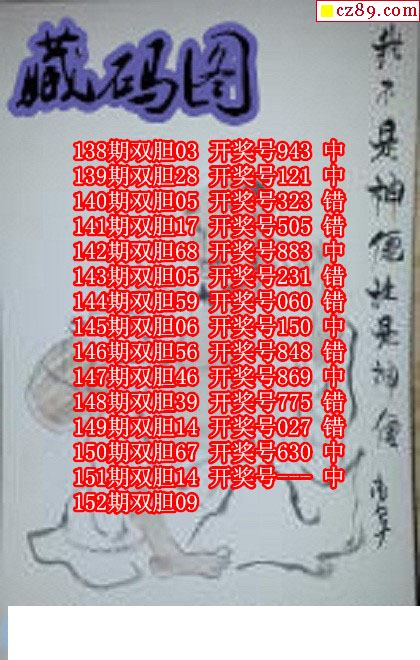 cz89.com
藏码图
138期双胆03 开奖号943 中
139期双胆28 开奖号121 中
140期双胆05 开奖号323 错
141期双胆17 开奖号505 错
142期双胆68 开奖号883 中
143期双胆05 开奖号231 错
144期双胆59 开奖号060 错
145期双胆06 开奖号150 中
146期双胆56 开奖号848 错
147期双胆46 开奖号869 中
148期双胆39 开奖号775 错
149期双胆14 开奖号027 错
150期双胆67 开奖号630 中
151期双胆14 开奖号--- 中
152期双胆09
我不是神仙
是神仙